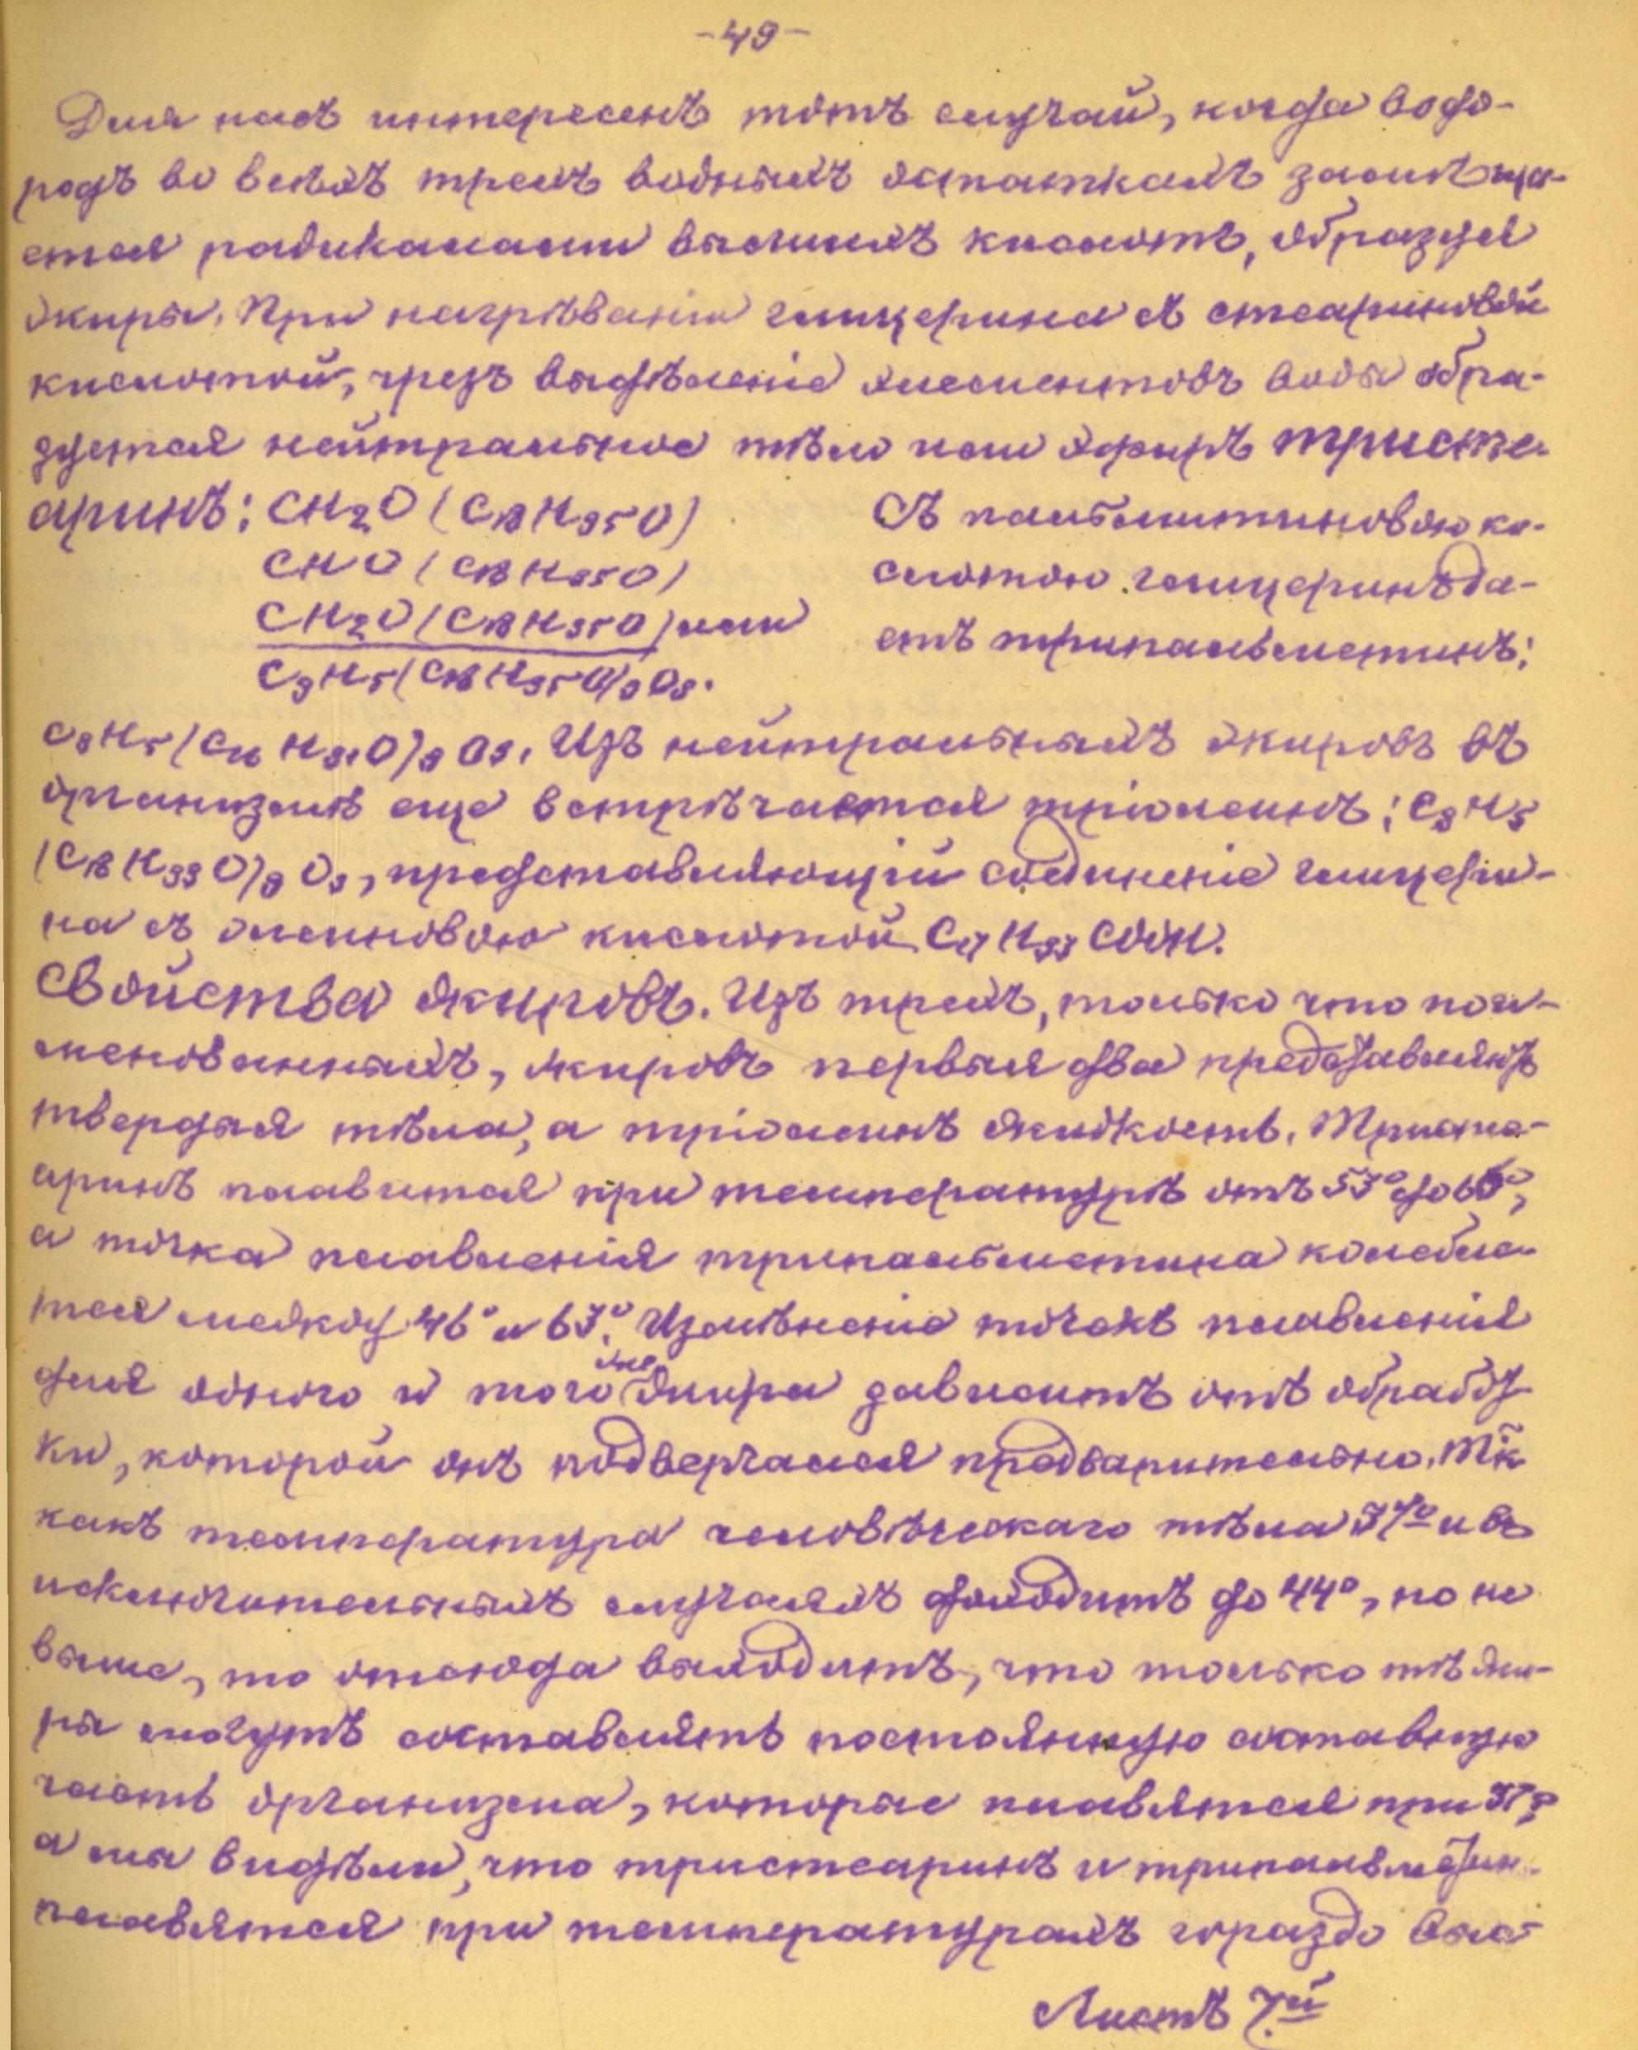 -49-
Для насъ интересенъ тотъ случай, когда водо-
родъ во всѣхъ трехъ водныхъ остаткахъ замѣща-
ется радикалами высшихъ кислотъ, образуя
жиры. При нагрѣваніи глицерина съ стеариновой
кислотой, чрезъ выдѣленіе элементовъ воды обра-
зуется нейтральное тѣло или эфиръ тристе-
аринъ: CH2O(C18H35O)
CHO(C18H35O)
CH2O(C18H35O) или
C3H5(C18H35O)3O3.
Съ пальмитиновою ки-
слотою глицеринъ да-
етъ трипальметинъ:
C3H5(C16H31O)3O3. Изъ нейтральныхъ жировъ въ
организмѣ еще встрѣчается тріолеинъ: C3H5
(C18H33O)3O3, представляющій соединеніе глицери-
на съ олеиновою кислотой C17H33COOH.
Свойства жировъ. Изъ трехъ, только что пои-
менованныхъ, жировъ первыя два представляютъ
твердыя тѣла, а тріолеинъ жидкость. Тристе-
аринъ плавится при температурѣ отъ 53° до 66°,
а точка плавленія трипальметина колебле-
тся между 46° и 63°. Измѣненіе точекъ плавленія
для одного и того же жира зависитъ отъ обработ-
ки, которой онъ подвергался предварительно. Т̃к
какъ температура человѣческаго тѣла 37° и въ
исключительныхъ случаяхъ доходитъ до 44°, но не
выше, то отсюда выходитъ, что только тѣ жи-
ры могутъ составлять постоянную составную
часть организма, которые плавятся при 37°,
а мы видѣли, что тристеаринъ и трипальметин
плавятся при температурахъ гораздо выс-
Листъ 7.й